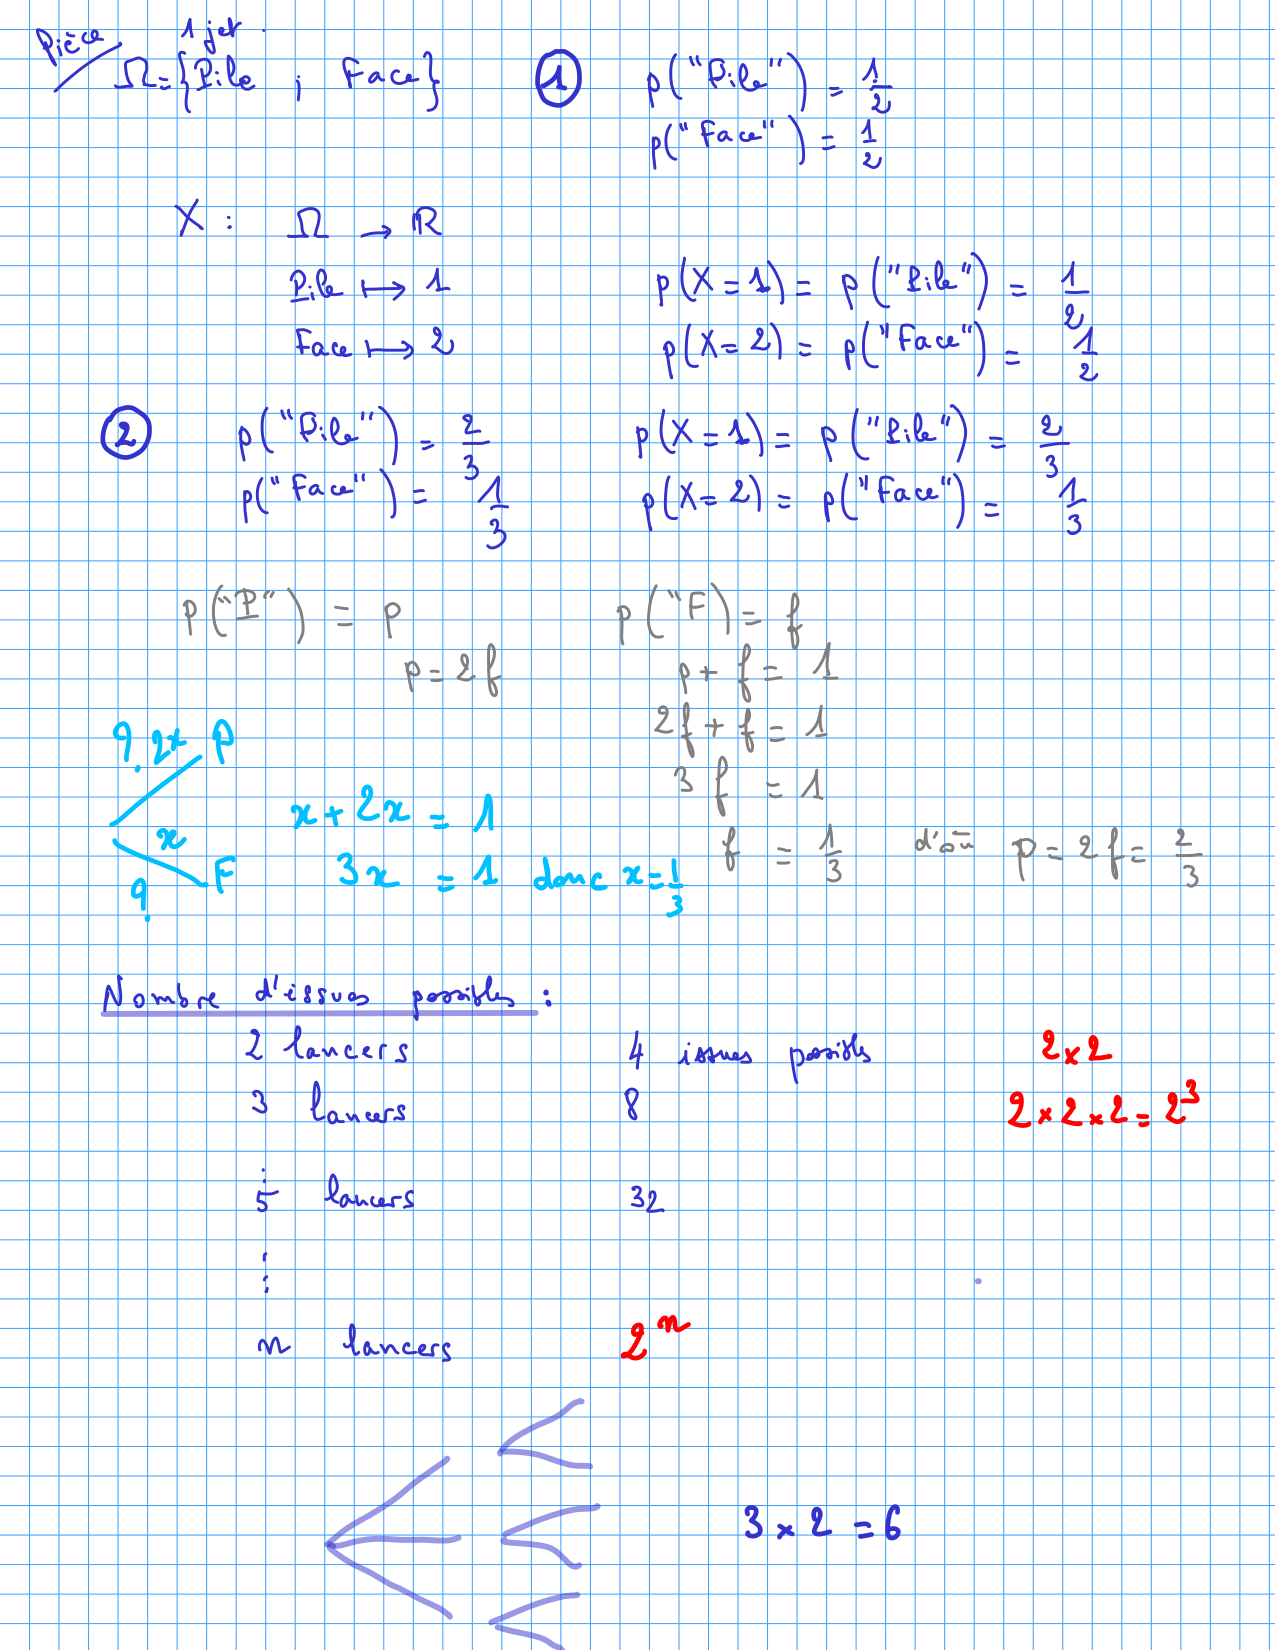 Pièce
1 jet.
Ω = {Pile ; Face}
① p("Pile") = 1/2
p("Face") = 1/2
X : Ω → R
Pile ↦ 1 p(X = 1) = p("Pile") = 1/2
Face ↦ 2 p(X = 2) = p("Face") = 1/2
② p("Pile") = 2/3 p(X = 1) = p("Pile") = 2/3
p("Face") = 1/3 p(X = 2) = p("Face") = 1/3
p("P") = p p("F) = f
p = 2f p + f = 1
2f + f = 1
3 f = 1
f = 1/3 d'où p = 2f = 2/3
? 2x P
x
? F
x + 2x = 1
3x = 1 donc x = 1/3
Nombre d'issues possibles :
2 lancers 4 issues possibles 2 × 2
3 lancers 8 2 × 2 × 2 = 2³
⋮
5 lancers 32
⋮
n lancers 2ⁿ
3 × 2 = 6